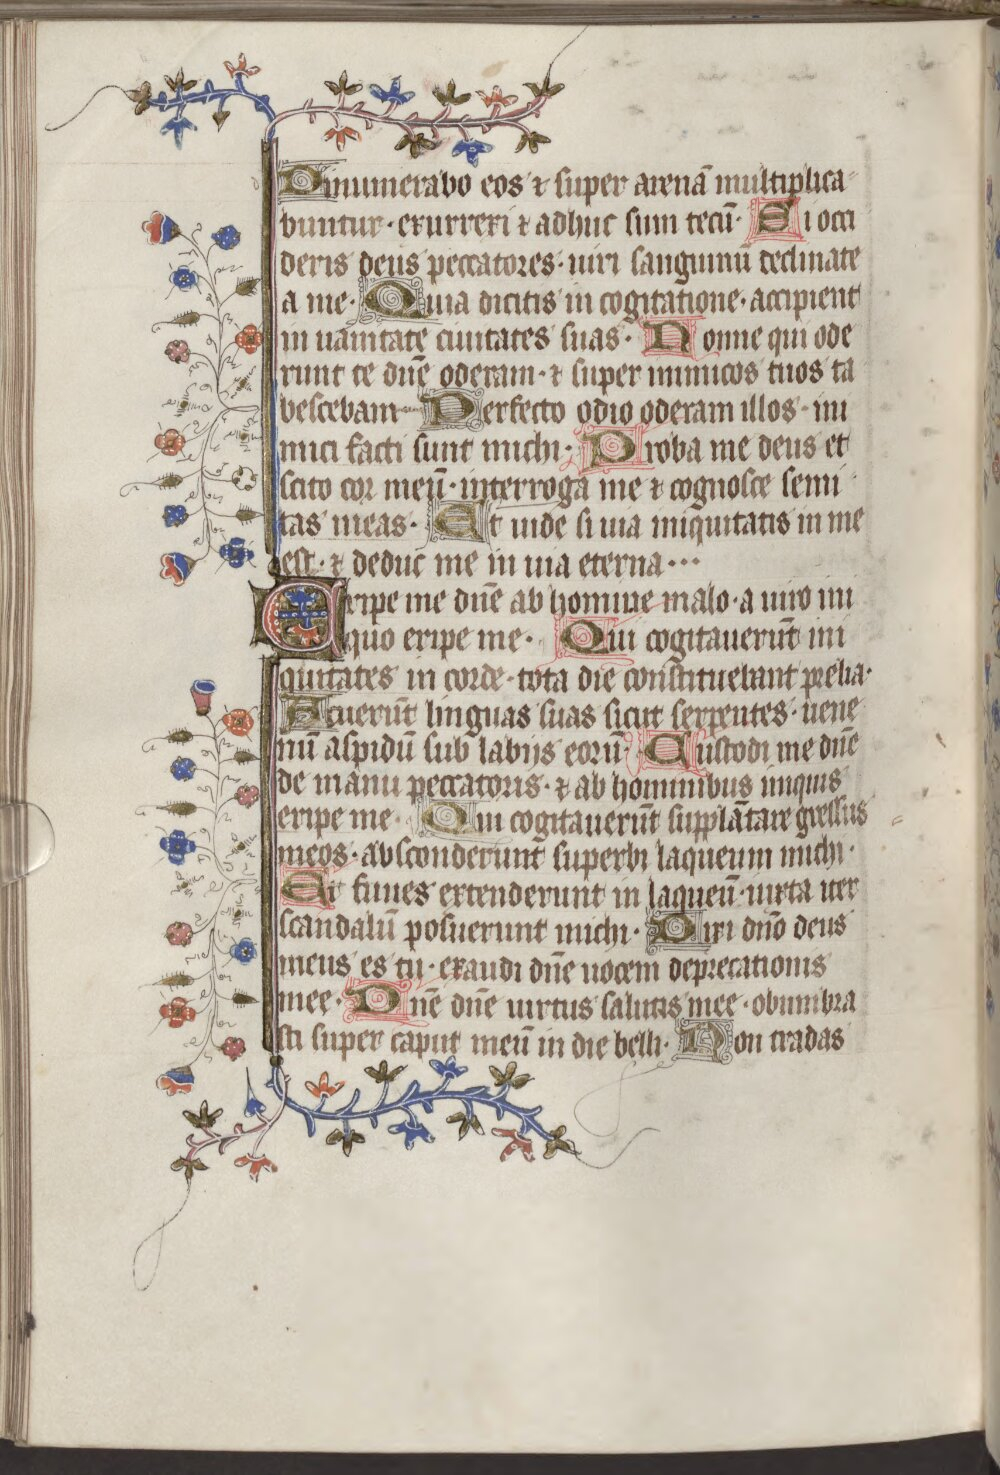 Dinumerabo eos ⁊ super arenā multiplica-
buntur · exurrexi ⁊ adhuc sum tecū · Si occi
deris deus peccatores · uiri sanguinū declinate
a me · Quia dicitis in cogitatione · accipient
in uanitate ciuitates suas · Nonne qui ode
runt te dn̄e oderam · ⁊ super inimicos tuos ta
bescebam Perfecto odio oderam illos · ini
mici facti sunt michi · Proba me deus et
scito cor meū · interroga me ⁊ cognosce semi
tas meas · Et uide si uia iniquitatis in me
est · ⁊ deduc me in uia eterna ···
Eripe me dn̄e ab homine malo · a uiro ini
quo eripe me · Qui cogitauerūt ini
quitates in corde · tota die constituebant prelia ·
Acuerūt linguas suas sicut serpentes · uene
nū aspidū sub labijs eorū · Custodi me dn̄e
de manu peccatoris · ⁊ ab hominibus iniquis
eripe me · Qui cogitauerūt supplātare gressus
meos · absconderunt superbi laqueum michi ·
Et funes extenderunt in laqueū · iuxta iter
scandalū posuerunt michi · Dixi dn̄o deus
meus es tu · exaudi dn̄e uocem deprecationis
mee · Dn̄e dn̄e uirtus salutis mee · obumbra
sti super caput meū in die belli · Non tradas